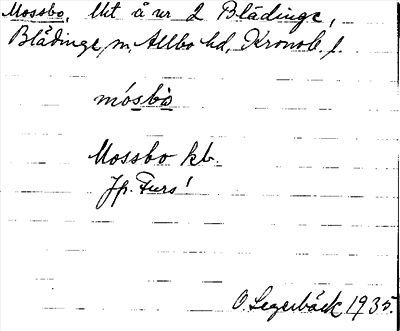 Mossbo, Uht å nr 2 Blädinge,
Blädinge, m, Allbo hd, Kronob. l.
mósbò
Mossbo kb.
Jfr. Furs!
O. Legerbäck 1935.